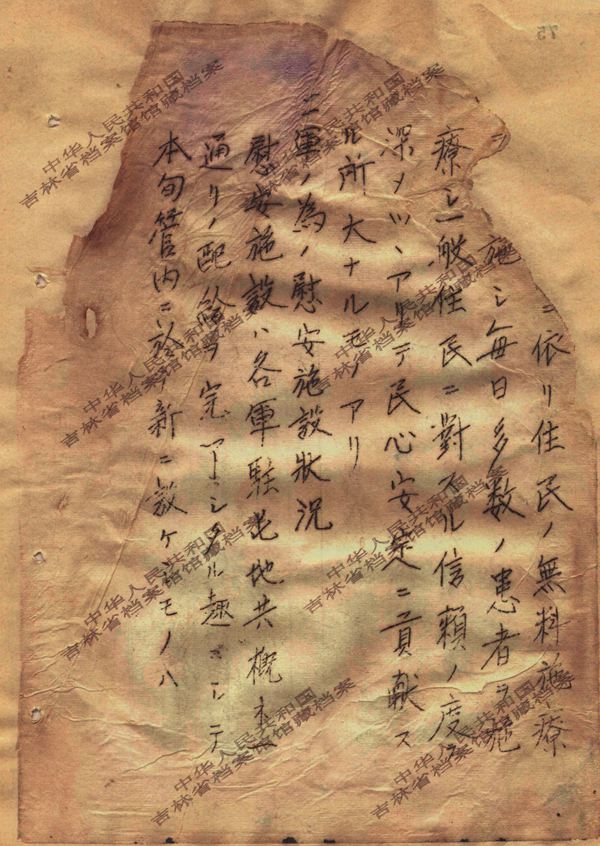 ニ依リ住民ノ無料施療
施シ毎日多数ノ患者ヲ施
療シ一般住民ニ對スル信頼ノ度ヲ
深メツヽアリテ民心安定ニ貢献ス
ル所大ナルモノアリ
二軍ノ為ノ慰安施設狀況
慰安施設ハ各軍駐屯地共概ネ
通リノ配給ヲ完了シタル趣ニシテ
本旬管内ニ於テ新ニ設ケシモノハ
75
中华人民共和国
吉林省档案馆馆藏档案
中华人民共和国
吉林省档案馆馆藏档案
中华人民共和国
吉林省档案馆馆藏档案
中华人民共和国
吉林省档案馆馆藏档案
中华人民共和国
吉林省档案馆馆藏档案
中华人民共和国
吉林省档案馆馆藏档案
中华人民共和国
吉林省档案馆馆藏档案
中华人民共和国
吉林省档案馆馆藏档案